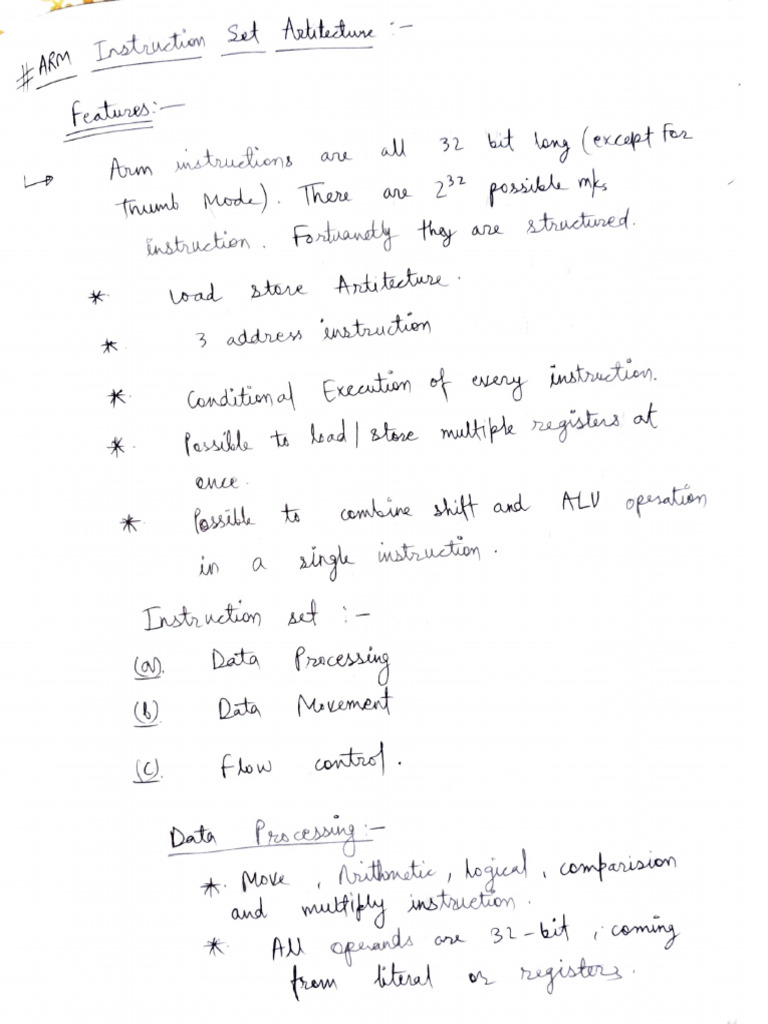 #ARM Instruction Set Artitecture :-
Features:-
Arm instructions are all 32 bit long (except for
thumb Mode). There are 2^32 possible m/cs
instruction. Fortuanetly they are structured.
* Load store Artitecture.
* 3 address instruction
* Conditional Execution of every instruction.
* Possible to load/store multiple registers at
once.
* Possible to combine shift and ALU operation
in a single instruction.
Instruction set :-
(a). Data Processing
(b). Data Movement
(c). Flow control.
Data Processing:-
* Move, Arithmetic, logical, comparision
and multiply instruction.
* All operands are 32-bit, coming
from literal or registers.